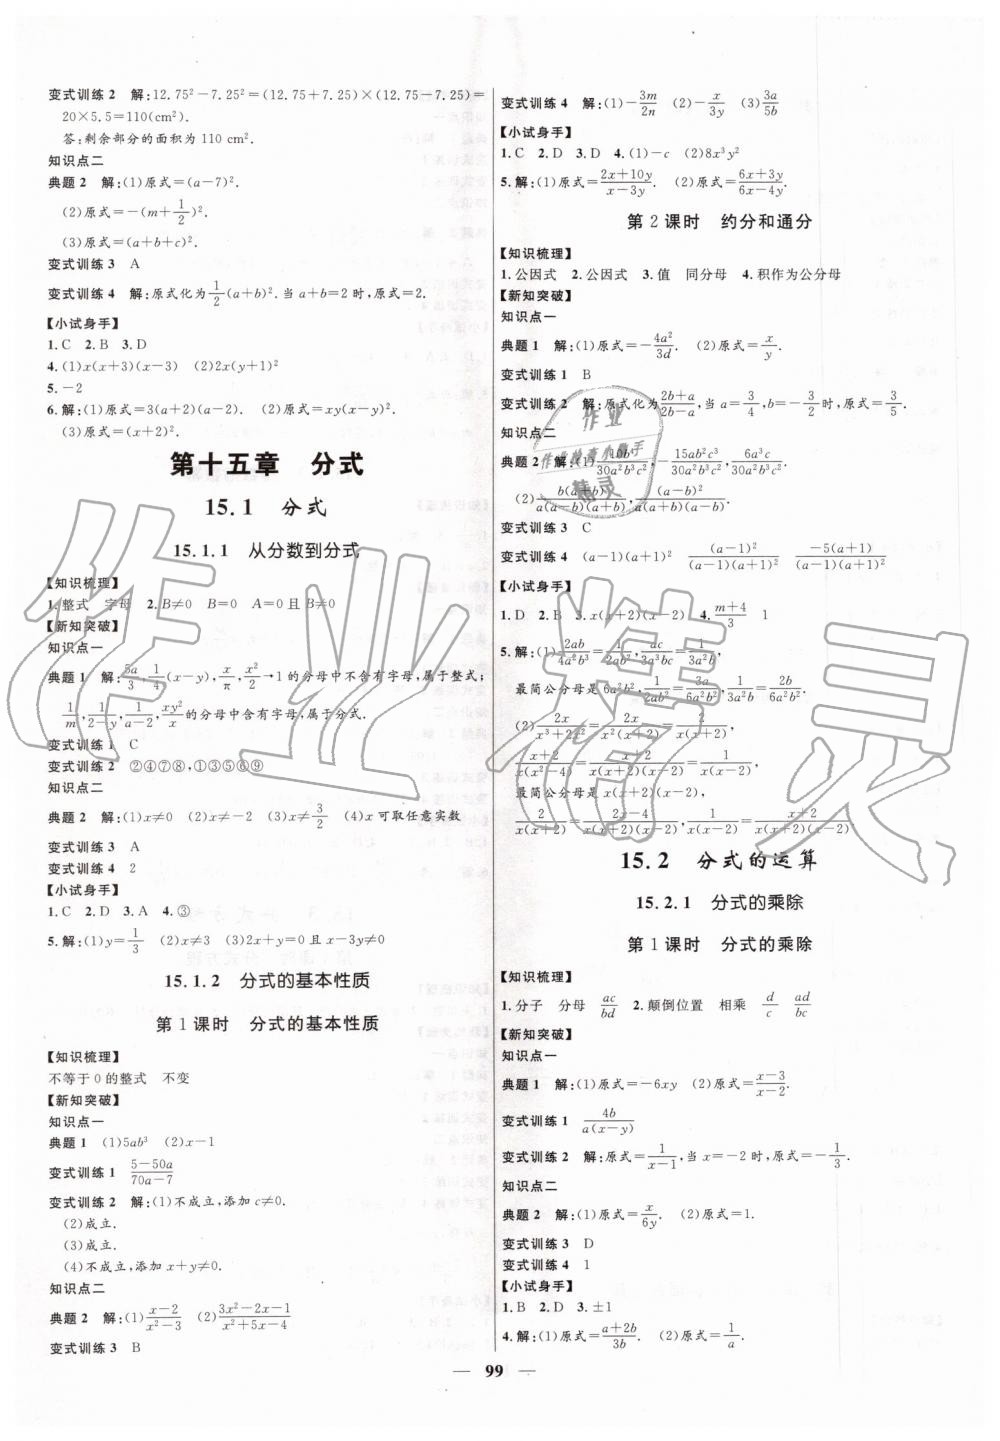 变式训练2 解:12.75²-7.25²=(12.75+7.25)×(12.75-7.25)=
20×5.5=110(cm²).
答:剩余部分的面积为110 cm².
知识点二
典题2 解:(1)原式=(a-7)².
(2)原式=-(m+1/2)².
(3)原式=(a+b+c)².
变式训练3 A
变式训练4 解:原式化为1/2(a+b)².当a+b=2时,原式=2.
【小试身手】
1.C 2.B 3.D
4.(1)x(x+3)(x-3) (2)2x(y+1)²
5.-2
6.解:(1)原式=3(a+2)(a-2). (2)原式=xy(x-y)².
(3)原式=(x+2)².
第十五章 分式
15.1 分式
15.1.1 从分数到分式
【知识梳理】
1.整式 字母 2.B≠0 B=0 A=0且B≠0
【新知突破】
知识点一
典题1 解:5a/3,1/4(x-y),x/π,x²/2-1的分母中不含有字母,属于整式;
1/m,1/(2-y),1/(a-2),xy²/x的分母中含有字母,属于分式.
变式训练1 C
变式训练2 ②④⑦⑧,①③⑤⑥⑨
知识点二
典题2 解:(1)x≠0 (2)x≠-2 (3)x≠3/2 (4)x可取任意实数
变式训练3 A
变式训练4 2
【小试身手】
1.C 2.D 3.A 4.③
5.解:(1)y=1/3 (2)x≠3 (3)2x+y=0且x-3y≠0
15.1.2 分式的基本性质
第1课时 分式的基本性质
【知识梳理】
不等于0的整式 不变
【新知突破】
知识点一
典题1 (1)5ab³ (2)x-1
变式训练1 (5-50a)/(70a-7)
变式训练2 解:(1)不成立,添加c≠0.
(2)成立.
(3)成立.
(4)不成立,添加x+y≠0.
知识点二
典题2 解:(1)(x-2)/(x²-3) (2)(3x²-2x-1)/(x²+5x-4)
变式训练3 B
变式训练4 解:(1)-3m/2n (2)-x/3y (3)3a/5b
【小试身手】
1.C 2.D 3.D 4.(1)-c (2)8x³y²
5.解:(1)原式=(2x+10y)/(x-3y). (2)原式=(6x+3y)/(6x-4y).
第2课时 约分和通分
【知识梳理】
1.公因式 2.公因式 3.值 同分母 4.积作为公分母
【新知突破】
知识点一
典题1 解:(1)原式=-4a²/3d. (2)原式=x/y.
变式训练1 B
变式训练2 解:原式化为(2b+a)/(2b-a),当a=3/4,b=-3/2时,原式=3/5.
知识点二
典题2 解:(1)10b⁴/30a²b³c² -15ab²c³/30a²b³c² 6a³c/30a²b³c²
(2)b(a+b)/a(a-b)(a+b),a(a+b)/a(a-b)(a+b)
变式训练3 C
变式训练4 (a-1)(a+1)² (a-1)²/(a-1)(a+1)² -5(a+1)/(a-1)(a+1)²
【小试身手】
1.D 2.B 3.x(x+2)(x-2) 4.(m+4)/3 1
5.解:(1)2ab/4a²b³=1/2ab²,ac/3a³bc=1/3a²b,
最简公分母是6a²b²,1/2ab²=3a/6a²b²,1/3a²b=2b/6a²b².
(2)2x/(x³+2x²)=2x/x²(x+2)=2/x(x+2),
(x+2)/x(x²-4)=(x+2)/x(x+2)(x-2)=1/x(x-2),
最简公分母是x(x+2)(x-2)
2/x(x+2)=(2x-4)/x(x+2)(x-2),1/x(x-2)=(x+2)/x(x+2)(x-2)
15.2 分式的运算
15.2.1 分式的乘除
第1课时 分式的乘除
【知识梳理】
1.分子 分母 ac/bd 2.颠倒位置 相乘 d/c ad/bc
【新知突破】
知识点一
典题1 解:(1)原式=-6xy (2)原式=(x-3)/(x-2).
变式训练1 4b/a(x-y)
变式训练2 解:原式=1/(x-1),当x=-2时,原式=-1/3.
知识点二
典题2 解:(1)原式=x/6y. (2)原式=1.
变式训练3 D
变式训练4 1
【小试身手】
1.B 2.D 3.±1
4.解:(1)原式=(a+2b)/3b. (2)原式=1/a.
— 99 —
作业精灵